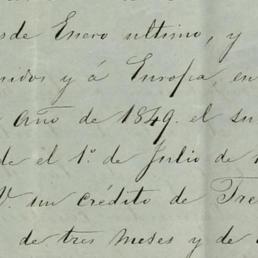 sde Enero ultimo, y
nidos y á Europa, en
año de 1849. el su
de el 1º. de Julio de
V. un crédito de Tre
de tres meses y de